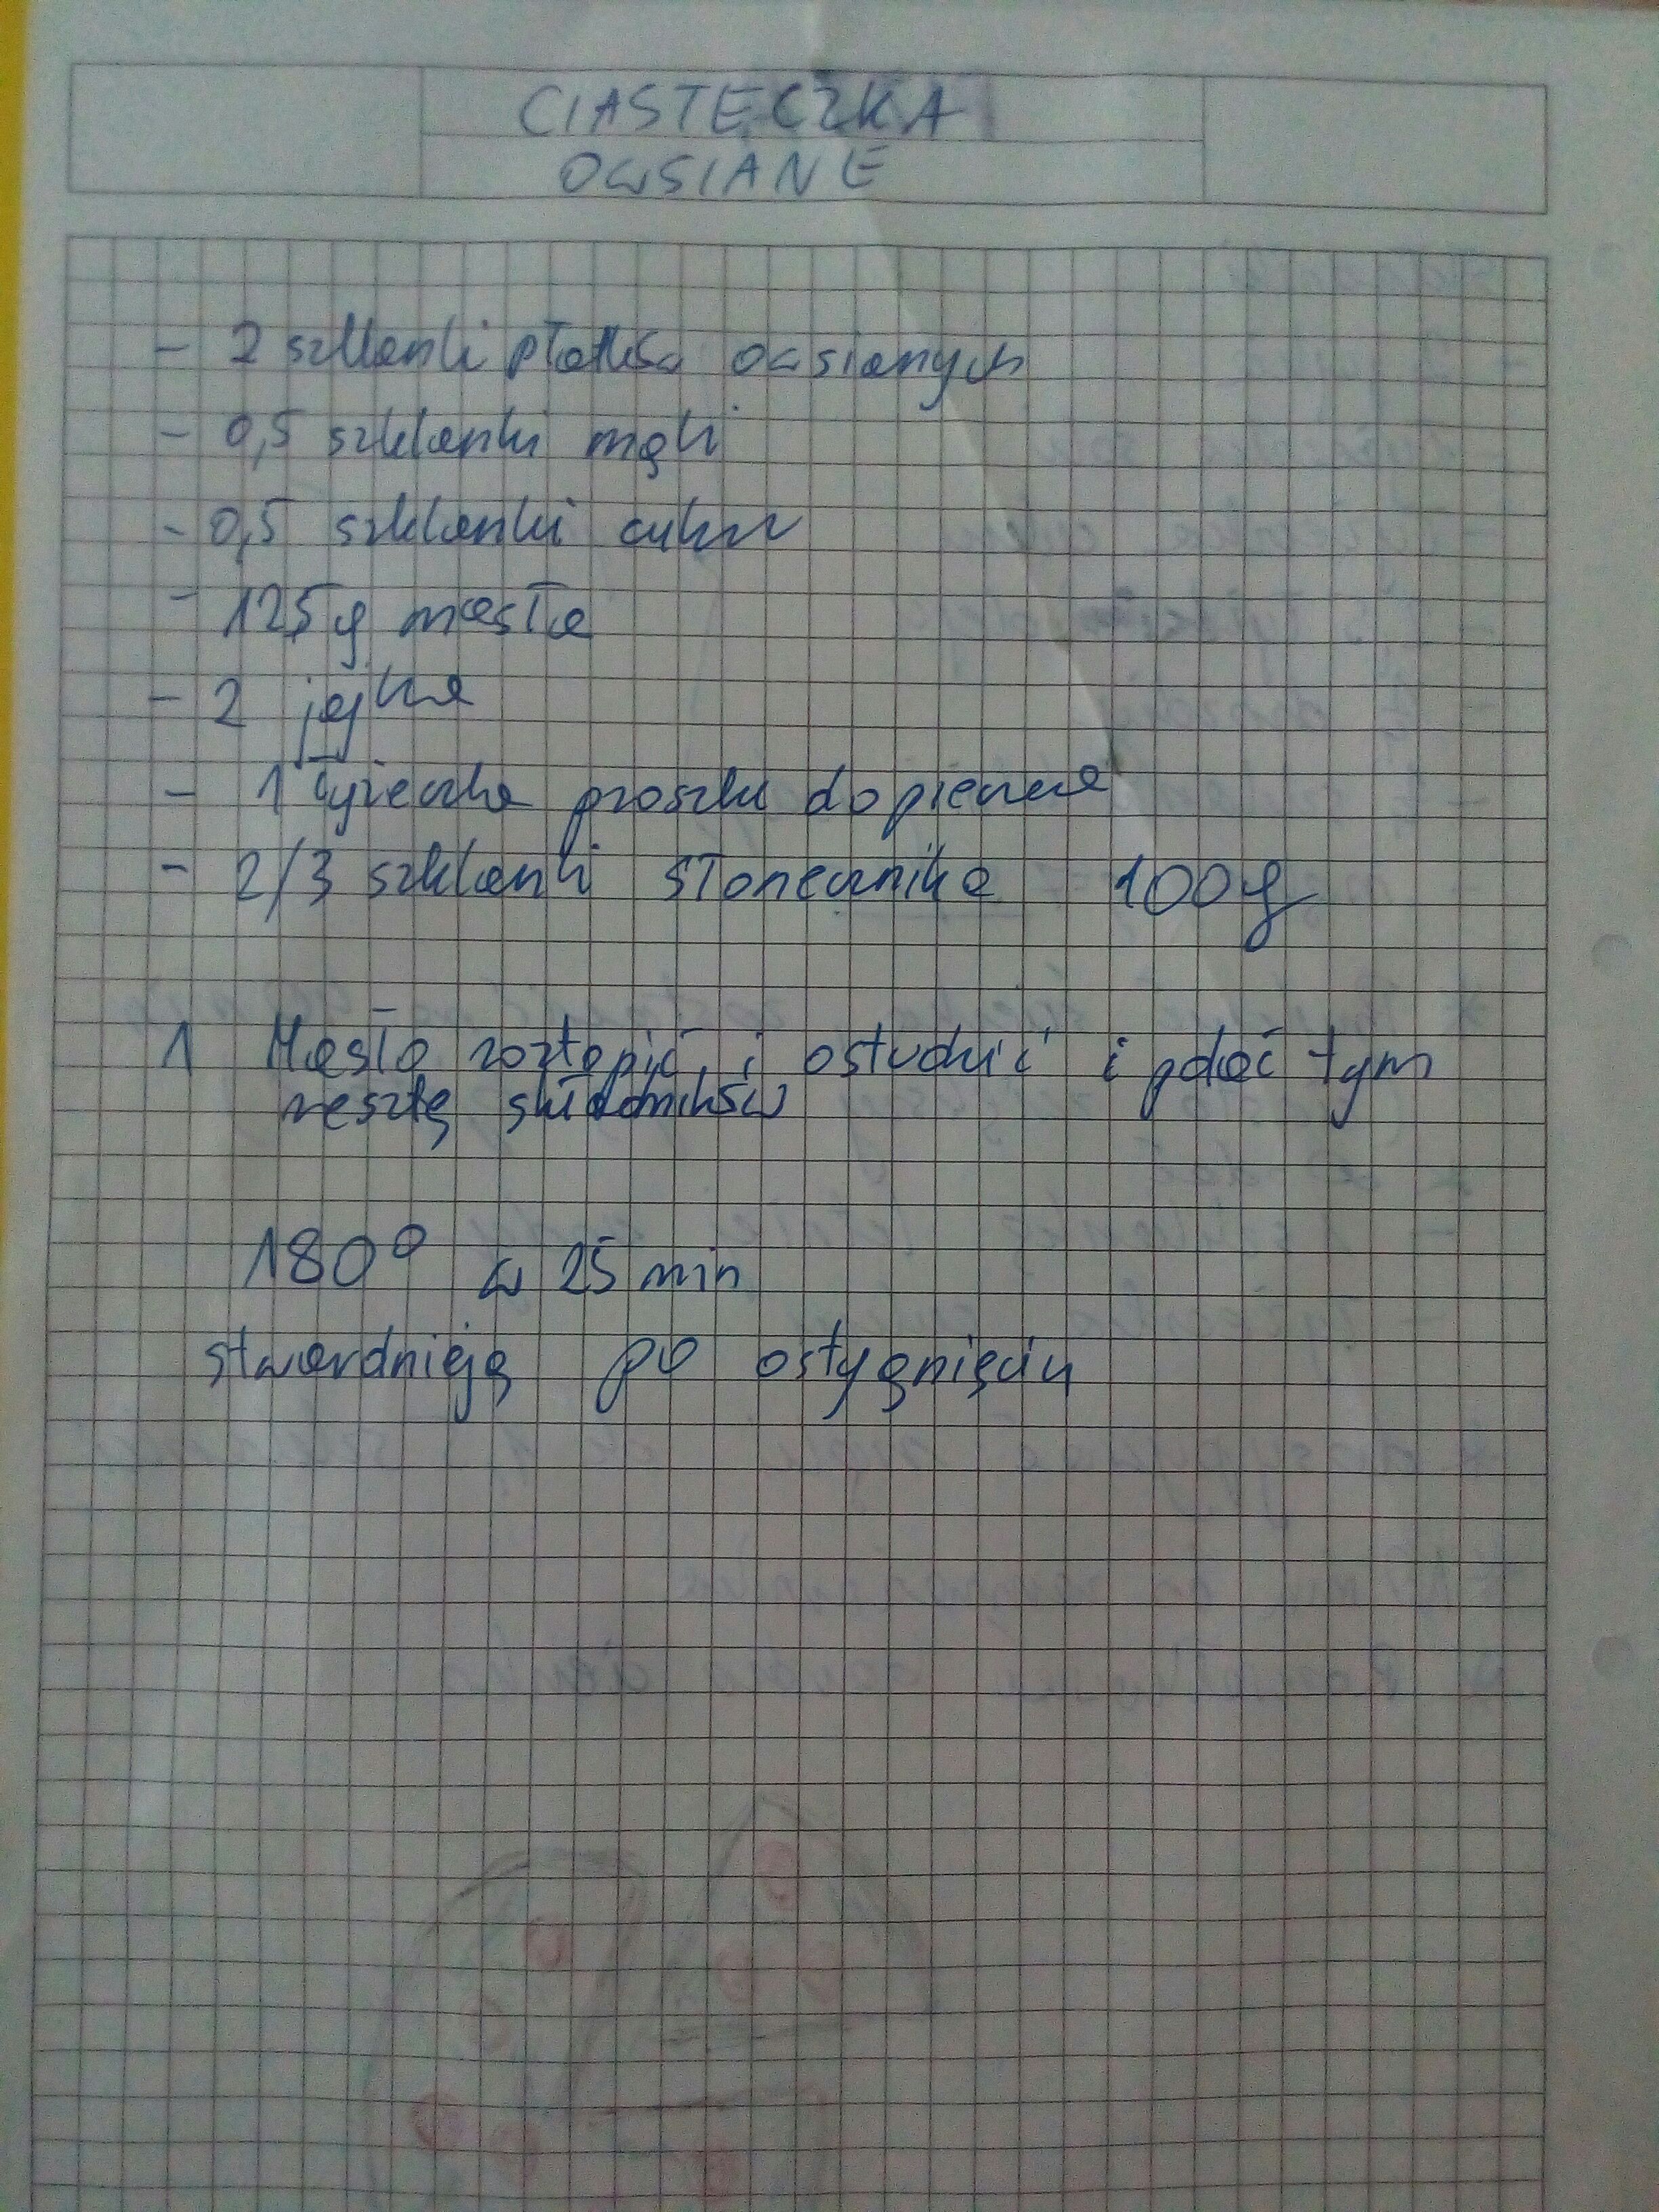 CIASTECZKA
OWSIANE
- 2 szklanki płatków owsianych
- 0,5 szklanki mąki
- 0,5 szklanki cukru
- 125g masła
- 2 jajka
- 1 łyżeczka proszku do pieczenia
- 2/3 szklanki słonecznika 100g
1 Masło roztopić i ostudzić i polać tym
resztę składników
180° w 25 min
stwardnieją po ostygnięciu